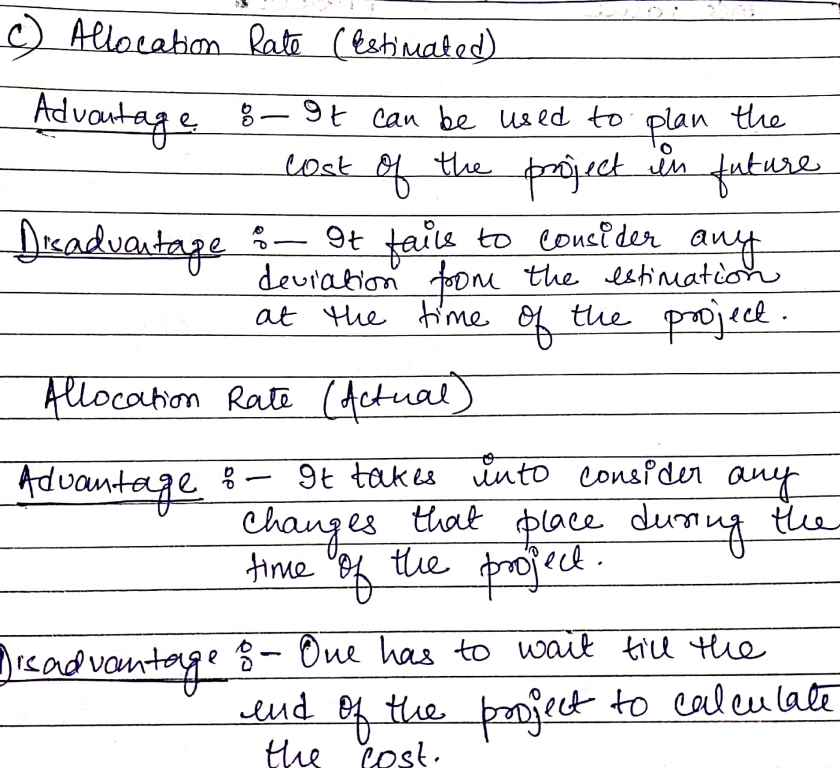 C) Allocation Rate (Estimated)
Advantage :- It can be used to plan the
cost of the project in future
Disadvantage :- It fails to consider any
deviation from the estimation
at the time of the project.
Allocation Rate (Actual)
Advantage :- It takes into consider any
changes that place during the
time of the project.
Disadvantage :- One has to wait till the
end of the project to calculate
the cost.